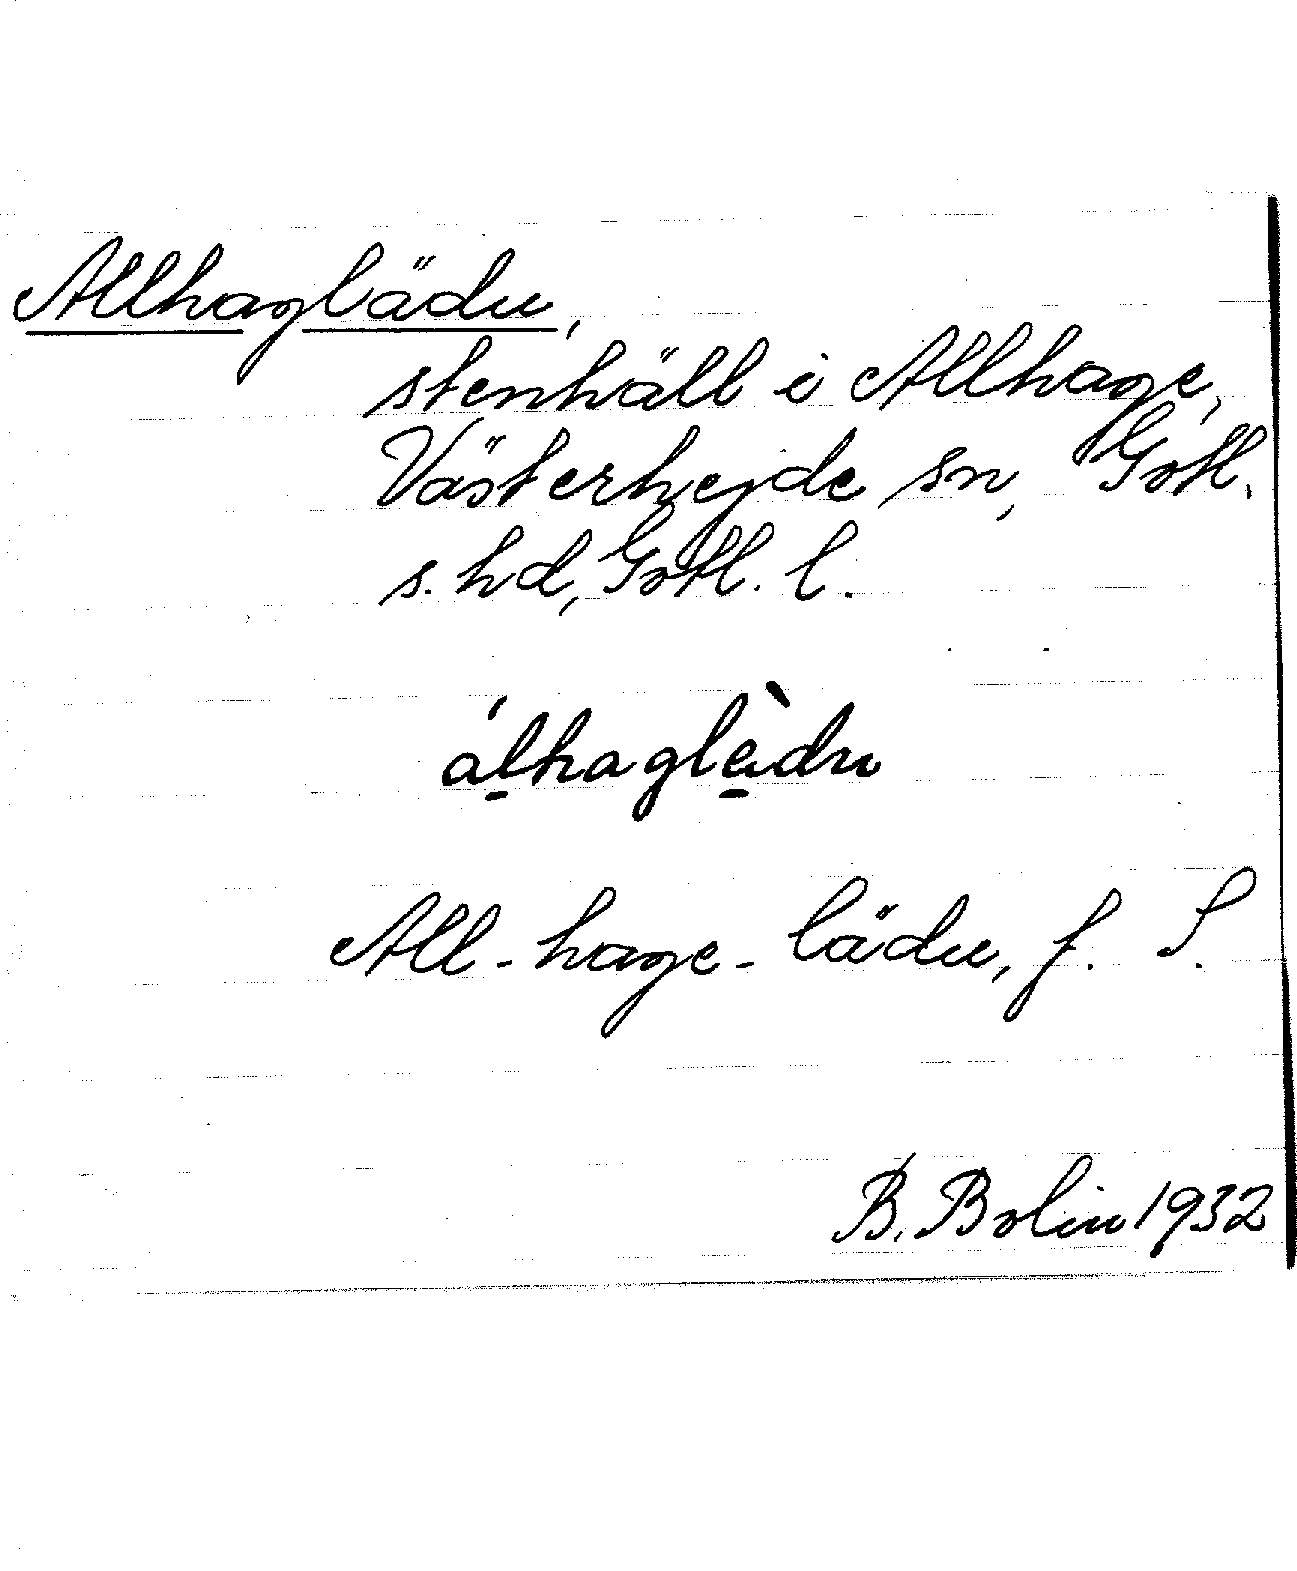 Allhaglädu,
stenhäll i Allhage,
Västerhejde sn, Gotl.
s. hd, Gotl. l.
álhaglèdu
All-hage-lädu, f. S.
B. Bolin 1932